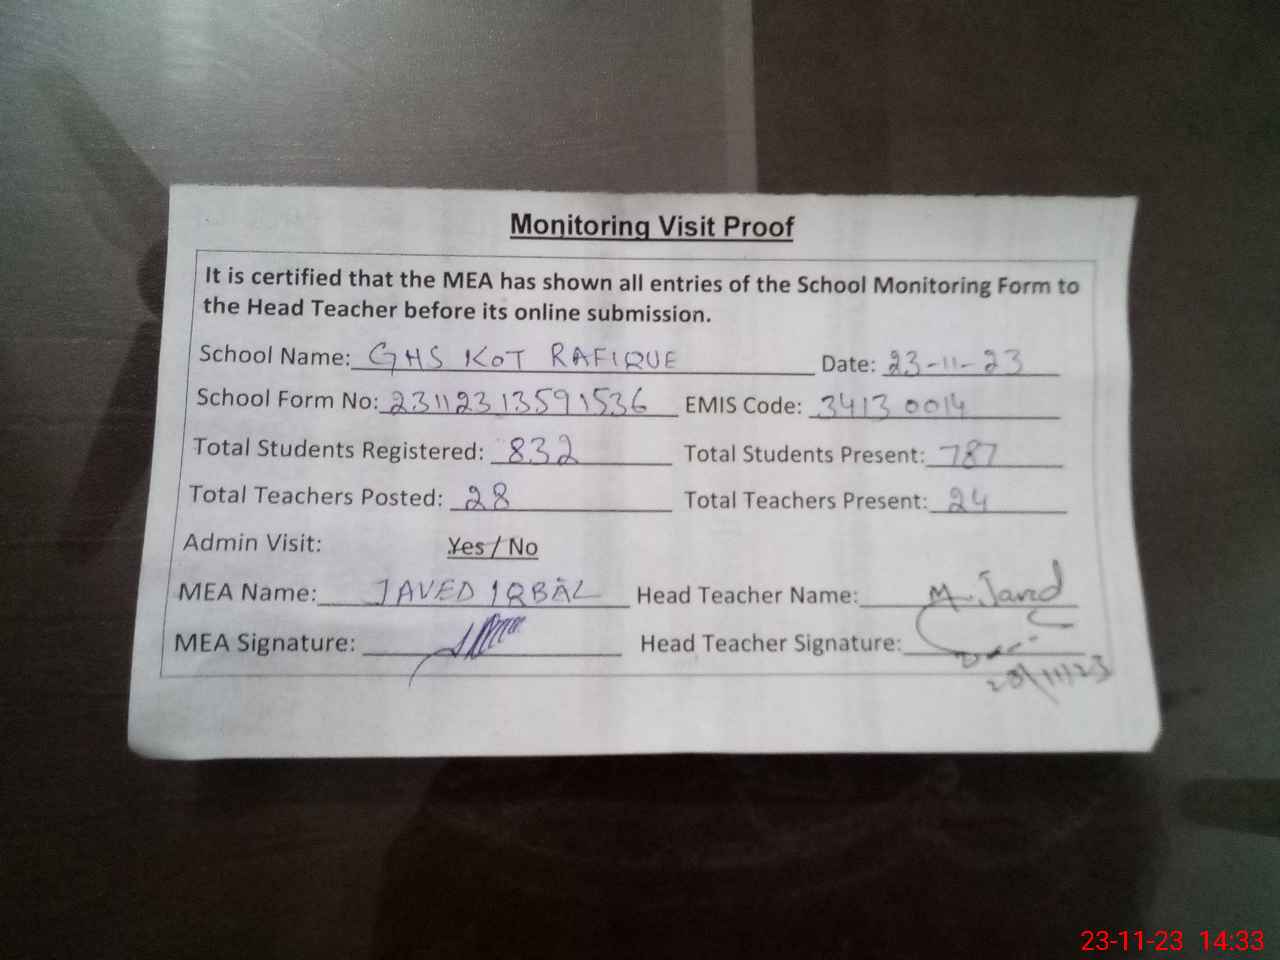 Monitoring Visit Proof
It is certified that the MEA has shown all entries of the School Monitoring Form to
the Head Teacher before its online submission.
School Name: GHS KOT RAFIQUE Date: 23-11-23
School Form No: 23112313591536 EMIS Code: 34130014
Total Students Registered: 832 Total Students Present: 787
Total Teachers Posted: 28 Total Teachers Present: 24
Admin Visit: Yes / No
MEA Name: JAVED IQBAL Head Teacher Name: M. Javed
MEA Signature: Head Teacher Signature:
23-11-23 14:33